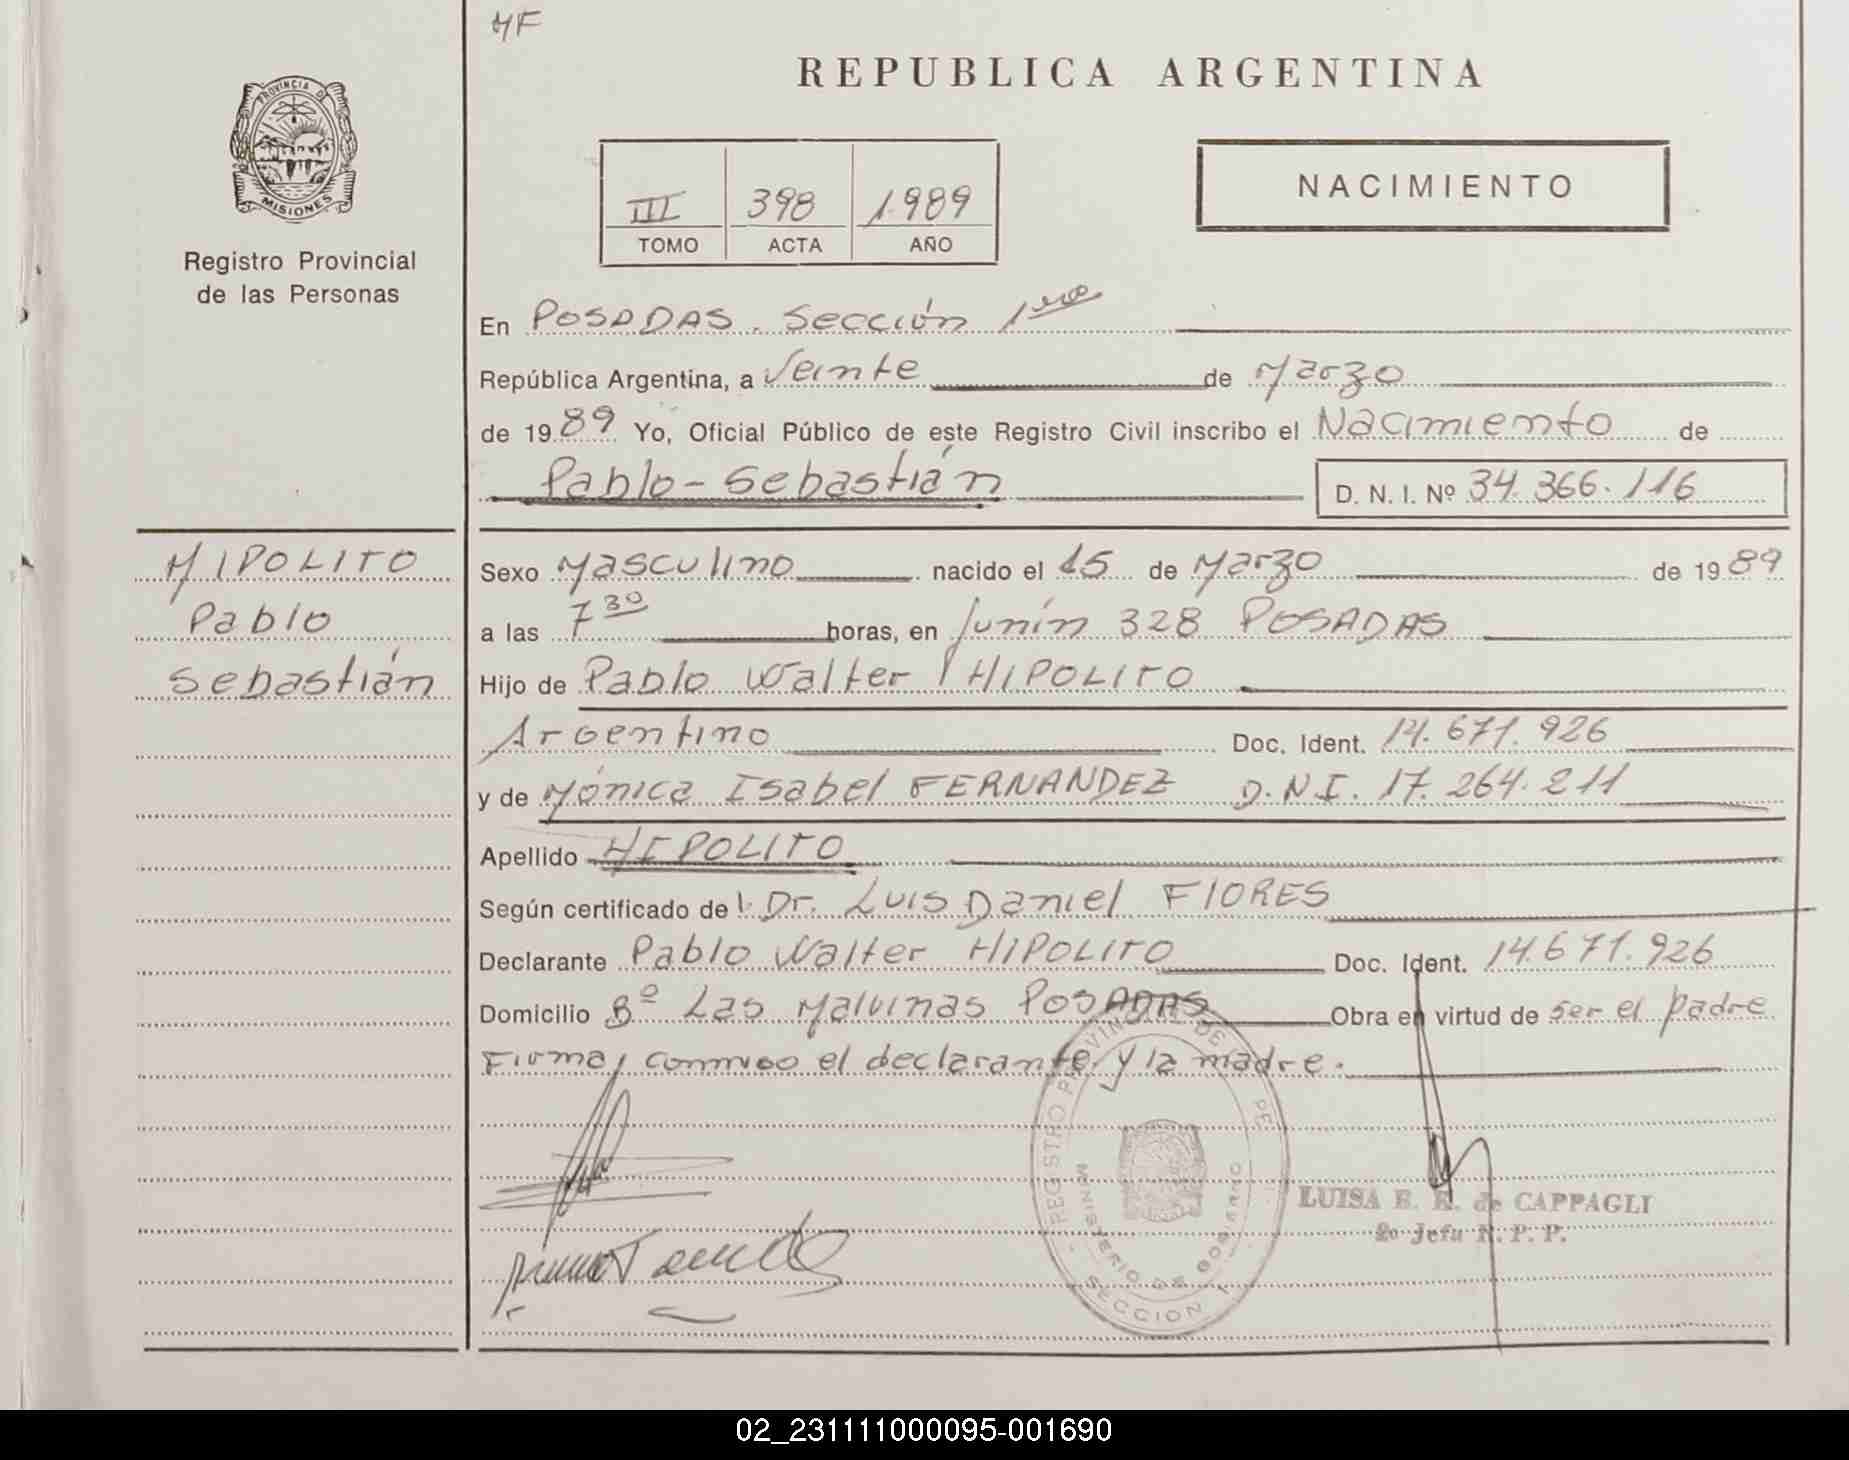 HF
REPUBLICA ARGENTINA
PROVINCIA D
MISIONES
Registro Provincial
de las Personas
III 398 1.989
TOMO ACTA AÑO
NACIMIENTO
En POSADAS. Sección 1era
República Argentina, a Veinte de Marzo
de 1989 Yo, Oficial Público de este Registro Civil inscribo el Nacimiento de
Pablo - Sebastián D. N. I. Nº 34.366.116
HIPOLITO
Pablo
Sebastián
Sexo Masculino nacido el 15 de Marzo de 1989
a las 7 30 horas, en Junín 328 POSADAS
Hijo de Pablo Walter HIPOLITO
Argentino Doc. Ident. 14.671.926
y de Mónica Isabel FERNANDEZ D.N.I. 17.264.211
Apellido HIPOLITO
Según certificado de Dr. Luis Daniel FlORES
Declarante Pablo Walter HIPOLITO Doc. Ident. 14.671.926
Domicilio Bº Las Malvinas POSADAS Obra en virtud de ser el padre
Firma, conmigo el declarante y la madre.
REGISTRO PROVINCIAL DE PE
MINISTERIO DE GOBIERNO
SECCION 1
LUISA E. E. de CAPPAGLI
2o Jefa R. P. P.
02_231111000095-001690